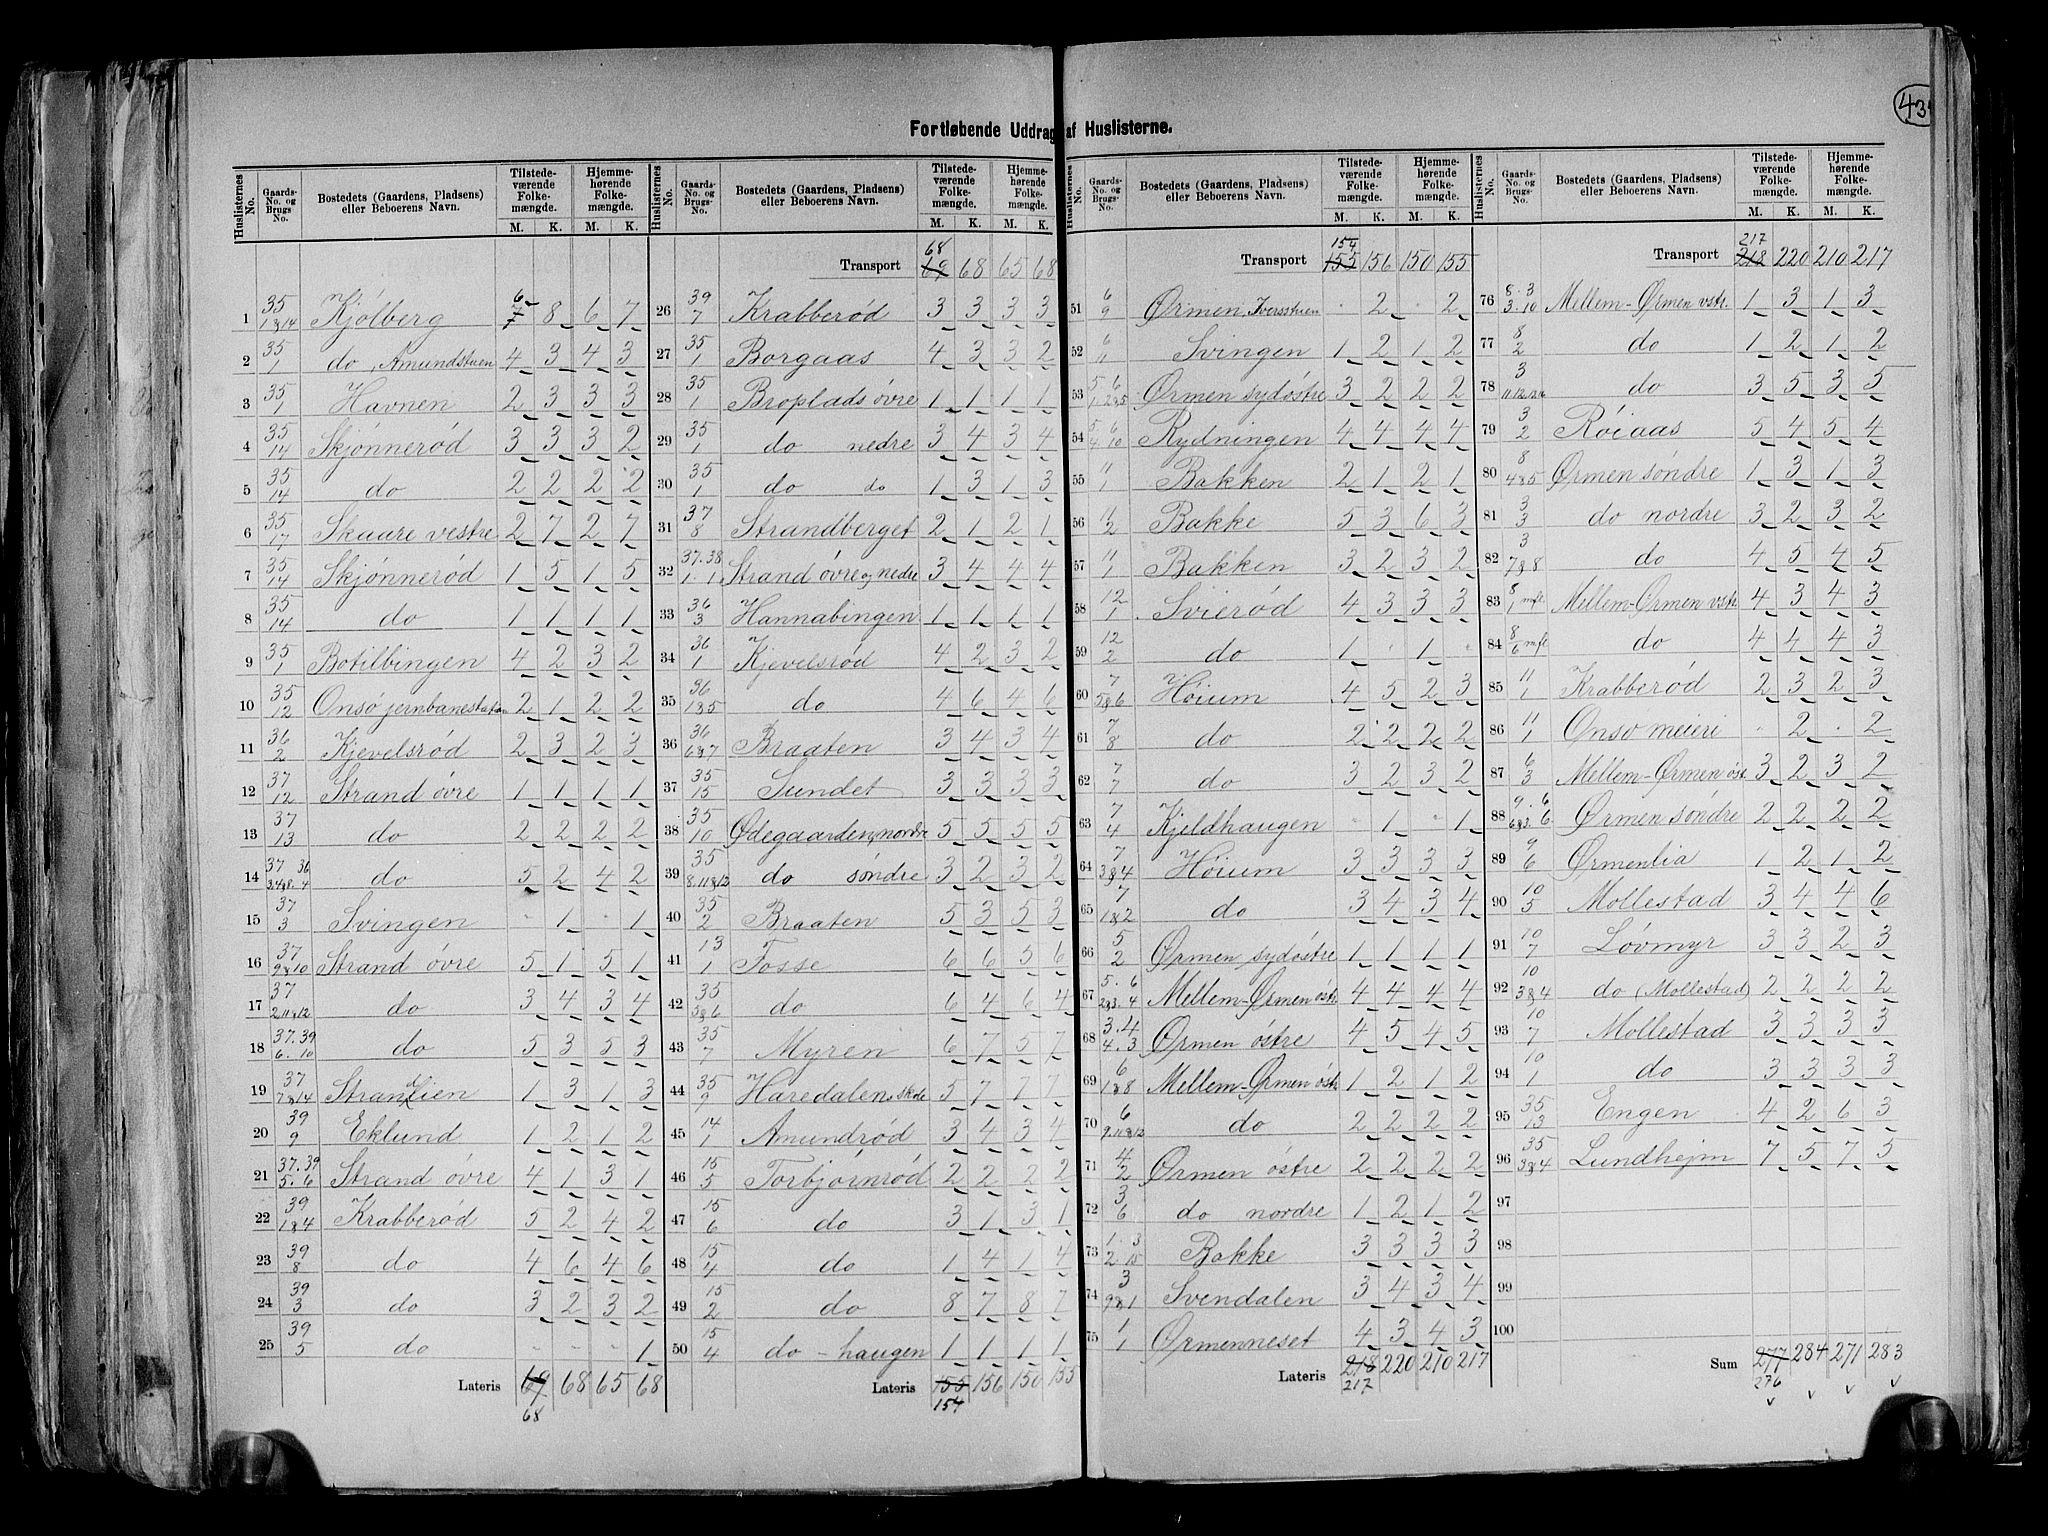 43
Fortløbende Uddrag af Huslisterne.
Huslisternes No. Gaards-No. og Brugs-No. Bostedets (Gaardens, Pladsens) eller Beboerens Navn. Tilstedeværende Folkemængde. M. K. Hjemmehørende Folkemængde. M. K.
1 35 1&14 Kjölberg 7 6 8 6 7
2 35 1 do, Amundstuen 4 3 4 3
3 35 1 Havnen 2 3 3 3
4 35 14 Skjönneröd 3 3 3 2
5 35 14 do 2 2 2 2
6 35 17 Skaare vestre 2 7 2 7
7 35 14 Skjönneröd 1 5 1 5
8 35 14 do 1 1 1 1
9 35 1 Botilbingen 4 2 3 2
10 35 12 Onsö jernbanestation 2 1 2 2
11 36 2 Kjevelsröd 2 3 2 3
12 37 12 Strand övre 1 1 1 1
13 37 13 do 2 2 2 2
14 37 36 3.4&8. 4 do 5 2 4 2
15 37 3 Svingen - 1 - 1
16 37 9&10 Strand övre 5 1 5 1
17 37 2.11&12 do 3 4 3 4
18 37.39 6.10 do 5 3 5 3
19 37 7&14 Strandlien 1 3 1 3
20 39 9 Eklund 1 2 1 2
21 37.39 5.6 Strand övre 4 1 3 1
22 39 1&4 Krabberöd 5 2 4 2
23 39 8 do 4 6 4 6
24 39 3 do 3 2 3 2
25 39 5 do - - - 1
Lateris 69 68 68 65 68
Huslisternes No. Gaards-No. og Brugs-No. Bostedets (Gaardens, Pladsens) eller Beboerens Navn. Tilstedeværende Folkemængde. M. K. Hjemmehørende Folkemængde. M. K.
Transport 68 69 68 65 68
26 39 7 Krabberöd 3 3 3 3
27 35 1 Borgaas 4 3 3 2
28 35 1 Broplads övre 1 1 1 1
29 35 1 do nedre 3 4 3 4
30 35 1 do do 1 3 1 3
31 37 8 Strandberget 2 1 2 1
32 37.38 1.1 Strand övre og nedre 3 4 4 4
33 36 3 Hannabingen 1 1 1 1
34 36 1 Kjevelsröd 4 2 3 2
35 36 1&5 do 4 6 4 6
36 36 6&7 Braaten 3 4 3 4
37 35 15 Sundet 3 3 3 3
38 35 10 Ødegaarden, nordre 5 5 5 5
39 35 8.11&12 do söndre 3 2 3 2
40 35 2 Braaten 5 3 5 3
41 13 1 Fosse 6 6 5 6
42 35 3&6 do 6 4 6 4
43 35 7 Myren 6 7 5 7
44 35 9 Haredalen skole 5 7 7 7
45 14 1 Amundröd 3 4 3 4
46 15 5 Torbjörnröd 2 2 2 2
47 15 6 do 3 1 3 1
48 15 4 do 1 4 1 4
49 15 2 do 8 7 8 7
50 15 4 do - haugen 1 1 1 1
Lateris 155 154 156 150 155
Huslisternes No. Gaards-No. og Brugs-No. Bostedets (Gaardens, Pladsens) eller Beboerens Navn. Tilstedeværende Folkemængde. M. K. Hjemmehørende Folkemængde. M. K.
Transport 154 155 156 150 155
51 6 9 Ørmen, Iversstuen - 2 - 2
52 6 11 Svingen 1 2 1 2
53 5 6 1. 2&5 Ørmen sydöstre 3 2 2 2
54 5 6 4 10 Rydningen 4 4 4 4
55 11 1 Bakken 2 1 2 1
56 11 2 Bakke 5 3 6 3
57 11 1 Bakken 3 2 3 2
58 12 1 Svieröd 4 3 3 3
59 12 2 do 1 - 1 -
60 7 5&6 Höium 4 5 2 3
61 7 8 do 2 2 2 2
62 7 7 do 3 2 3 2
63 7 4 Kjeldhaugen - 1 - 1
64 7 3&4 Höium 3 3 3 3
65 7 1&2 do 3 4 3 4
66 5 2 Ørmen sydöstre 1 1 1 1
67 5. 6 2&3. 4 Mellem-Ørmen östr. 4 4 4 4
68 3.4 4.3 Ørmen östre 4 5 4 5
69 6 1&8 Mellem-Ørmen östr. 1 2 1 2
70 6 9.11&12 do 2 2 2 2
71 4 2 Ørmen östre 2 2 2 2
72 3 6 do nordre 1 2 1 2
73 1. 3 2. 15 Bakke 3 3 3 3
74 3 9&1 Svendalen 3 4 3 4
75 1 1 Ørmenneset 4 3 4 3
Lateris 218 217 220 210 217
Huslisternes No. Gaards-No. og Brugs-No. Bostedets (Gaardens, Pladsens) eller Beboerens Navn. Tilstedeværende Folkemængde. M. K. Hjemmehørende Folkemængde. M. K.
Transport 217 218 220 210 217
76 8. 3 3. 10 Mellem-Ørmen vstr. 1 3 1 3
77 8 2 do 1 2 1 2
78 3 do 3 5 3 5
79 3 2 Röiaas 5 4 5 4
80 8 4&5 Ørmen söndre 1 3 1 3
81 3 3 do nordre 3 2 3 2
82 3 7&8 do 4 5 4 5
83 8 1 mfl. Mellem-Ørmen vstr 4 3 4 3
84 8 6 mfl do 4 4 4 3
85 11 1 Krabberöd 2 3 2 3
86 11 1 Onsö meieri - 2 - 2
87 6 3 Mellem-Ørmen östr. 3 2 3 2
88 9. 6 6&3. 6 Ørmen söndre 2 2 2 2
89 9 6 Ørmenlia 1 2 1 2
90 10 5 Mollestad 3 4 4 6
91 10 7 Lövmyr 3 3 2 3
92 10 3&4 do (Mollestad) 2 2 2 2
93 10 7 Mollestad 3 3 3 3
94 10 1 do 3 3 3 3
95 35 13 Engen 4 2 6 3
96 35 3&4 Lundhejm 7 5 7 5
97
98
99
100
Sum 277 276 284 271 283